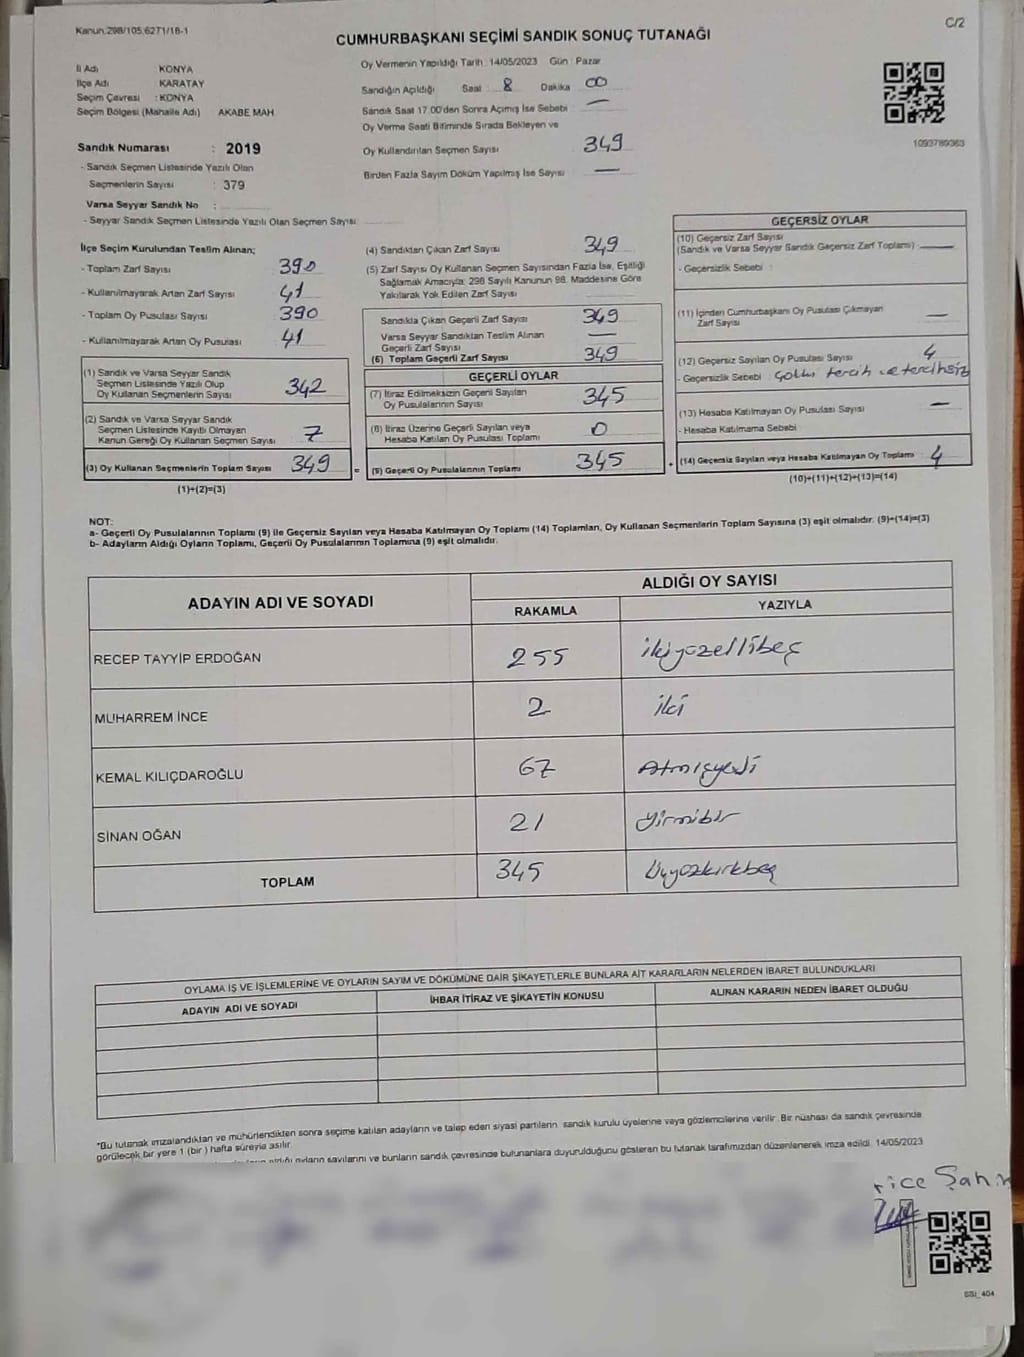 Kanun:298/105,6271/18-1
C/2
CUMHURBAŞKANI SEÇİMİ SANDIK SONUÇ TUTANAĞI
İl Adı KONYA
İlçe Adı KARATAY
Seçim Çevresi : KONYA
Seçim Bölgesi (Mahalle Adı) AKABE MAH
Sandık Numarası : 2019
- Sandık Seçmen Listesinde Yazılı Olan
Seçmenlerin Sayısı : 379
Varsa Seyyar Sandık No :
- Seyyar Sandık Seçmen Listesinde Yazılı Olan Seçmen Sayısı
Oy Vermenin Yapıldığı Tarih : 14/05/2023 Gün : Pazar
Sandığın Açıldığı Saat 8 Dakika 00
Sandık Saat 17:00'den Sonra Açımış İse Sebebi —
Oy Verme Saati Bitiminde Sırada Bekleyen ve
Oy Kullandırılan Seçmen Sayısı 349
Birden Fazla Sayım Döküm Yapılmış İse Sayısı —
1093789363
İlçe Seçim Kurulundan Teslim Alınan;
- Toplam Zarf Sayısı 390
- Kullanılmayarak Artan Zarf Sayısı 41
- Toplam Oy Pusulası Sayısı 390
- Kullanılmayarak Artan Oy Pusulası 41
(1) Sandık ve Varsa Seyyar Sandık
Seçmen Listesinde Yazılı Olup
Oy Kullanan Seçmenlerin Sayısı 342
(2) Sandık ve Varsa Seyyar Sandık
Seçmen Listesinde Kayıtlı Olmayan
Kanun Gereği Oy Kullanan Seçmen Sayısı 7
(3) Oy Kullanan Seçmenlerin Toplam Sayısı 349
(1)+(2)=(3)
(4) Sandıktan Çıkan Zarf Sayısı 349
(5) Zarf Sayısı Oy Kullanan Seçmen Sayısından Fazla İse, Eşitliği
Sağlamak Amacıyla; 298 Sayılı Kanunun 98. Maddesine Göre
Yakılarak Yok Edilen Zarf Sayısı
Sandıkta Çıkan Geçerli Zarf Sayısı 349
Varsa Seyyar Sandıktan Teslim Alınan —
Geçerli Zarf Sayısı
(6) Toplam Geçerli Zarf Sayısı 349
GEÇERLİ OYLAR
(7) İtiraz Edilmeksizin Geçerli Sayılan
Oy Pusulalarının Sayısı 345
(8) İtiraz Üzerine Geçerli Sayılan veya
Hesaba Katılan Oy Pusulası Toplamı 0
= (9) Geçerli Oy Pusulalarının Toplamı 345
GEÇERSİZ OYLAR
(10) Geçersiz Zarf Sayısı
(Sandık ve Varsa Seyyar Sandık Geçersiz Zarf Toplamı) —
- Geçersizlik Sebebi :
(11) İçinden Cumhurbaşkanı Oy Pusulası Çıkmayan
Zarf Sayısı —
(12) Geçersiz Sayılan Oy Pusulası Sayısı 4
- Geçersizlik Sebebi : çoklu tercih ve tercihsiz
(13) Hesaba Katılmayan Oy Pusulası Sayısı —
- Hesaba Katılmama Sebebi
+ (14) Geçersiz Sayılan veya Hesaba Katılmayan Oy Toplamı 4
(10)+(11)+(12)+(13)=(14)
NOT:
a- Geçerli Oy Pusulalarının Toplamı (9) ile Geçersiz Sayılan veya Hesaba Katılmayan Oy Toplamı (14) Toplamları, Oy Kullanan Seçmenlerin Toplam Sayısına (3) eşit olmalıdır. (9)+(14)=(3)
b- Adayların Aldığı Oyların Toplamı, Geçerli Oy Pusulalarının Toplamına (9) eşit olmalıdır.
ADAYIN ADI VE SOYADI
ALDIĞI OY SAYISI
RAKAMLA YAZIYLA
RECEP TAYYİP ERDOĞAN 255 ikiyüzellibeş
MUHARREM İNCE 2 iki
KEMAL KILIÇDAROĞLU 67 Atmışyedi
SİNAN OĞAN 21 yirmibir
TOPLAM 345 Üçyüzkırkbeş
OYLAMA İŞ VE İŞLEMLERİNE VE OYLARIN SAYIM VE DÖKÜMÜNE DAİR ŞİKAYETLERLE BUNLARA AİT KARARLARIN NELERDEN İBARET BULUNDUKLARI
ADAYIN ADI VE SOYADI İHBAR İTİRAZ VE ŞİKAYETİN KONUSU ALINAN KARARIN NEDEN İBARET OLDUĞU
*Bu tutanak imzalandıktan ve mühürlendikten sonra seçime katılan adayların ve talep eden siyasi partilerin sandık kurulu üyelerine veya gözlemcilerine verilir. Bir nüshası da sandık çevresinde
görülecek bir yere 1 (bir) hafta süreyle asılır.
aldığı oyların sayılarını ve bunların sandık çevresinde bulunanlara duyurulduğunu gösteren bu tutanak tarafımızdan düzenlenerek imza edildi. 14/05/2023
Şahin
SSI_404